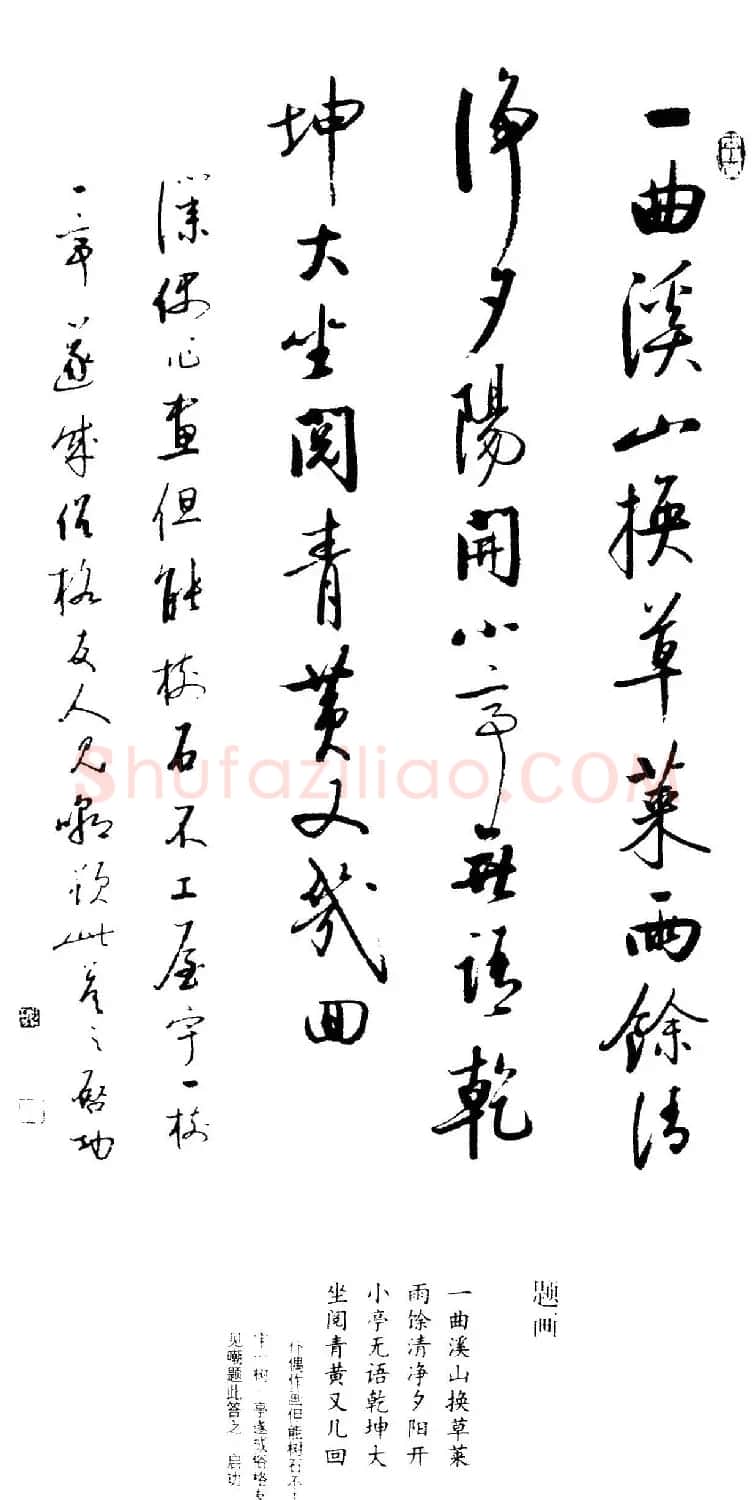 一曲溪山换草莱雨馀清
净夕陽開小亭無语乾
坤大坐阅青黄又几回
仆偶作画但能树石不工屋宇一树
一亭遂成俗格友人见嘲题此答之启功
Shufaziliao.COM
题画
一曲溪山换草莱
雨馀清净夕阳开
小亭无语乾坤大
坐阅青黄又几回
仆偶作画但能树石不工
宇一树一亭遂成俗格友
见嘲题此答之 启功